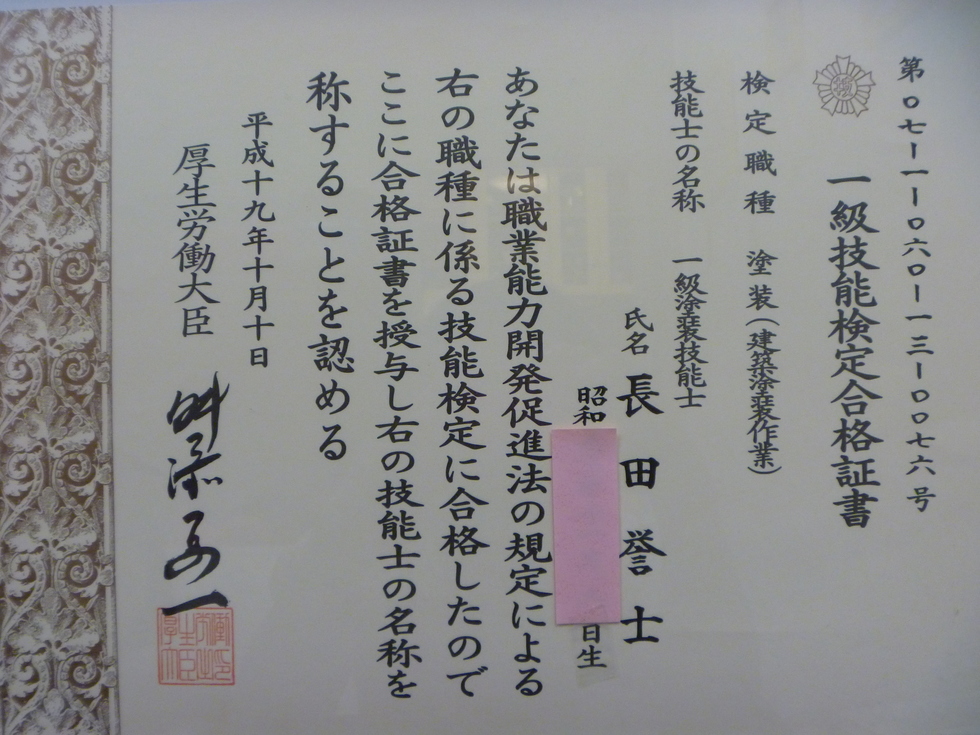 第〇七－一－〇六〇－一三－〇〇七六号
一級技能検定合格証書
検定職種 塗装(建築塗装作業)
技能士の名称 一級塗装技能士
氏名 長田誉士
昭和
日生
あなたは職業能力開発促進法の規定による
右の職種に係る技能検定に合格したので
ここに合格証書を授与し右の技能士の名称を
称することを認める
平成十九年十月十日
厚生労働大臣 舛添要一